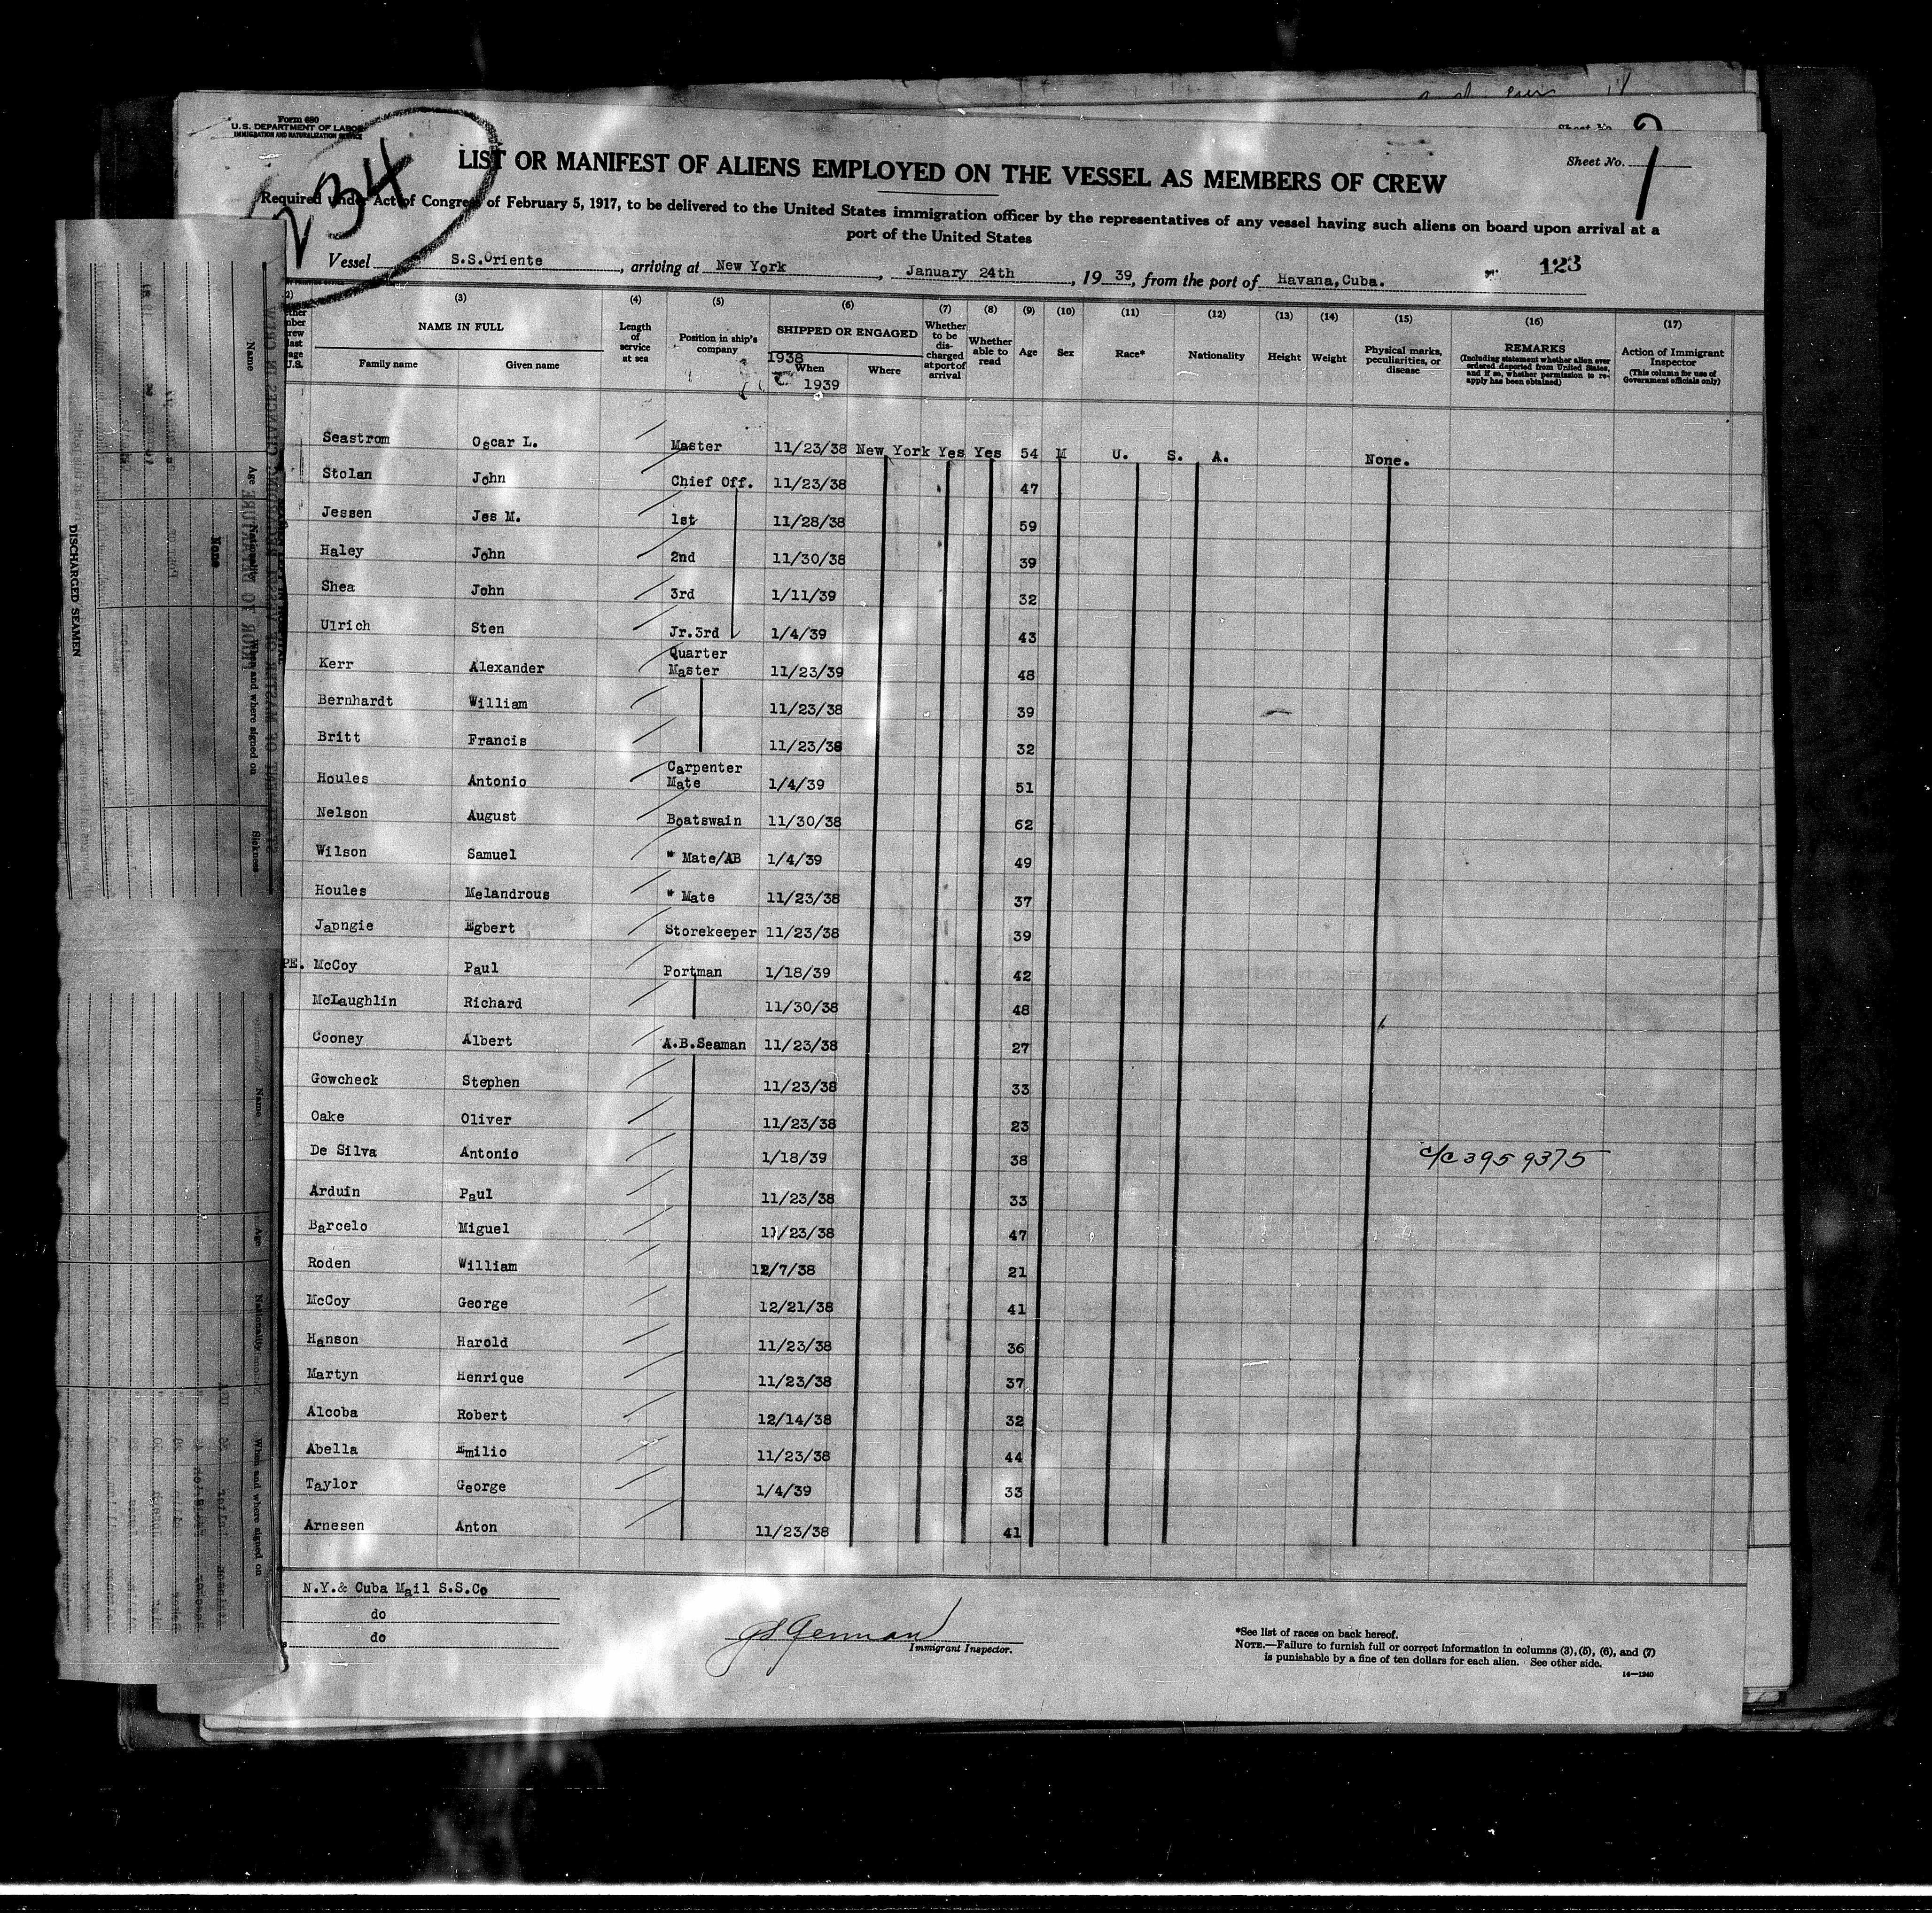 Form 680
U.S. DEPARTMENT OF LABOR
IMMIGRATION AND NATURALIZATION SERVICE
234
Sheet No.
Sheet No. 1
LIST OR MANIFEST OF ALIENS EMPLOYED ON THE VESSEL AS MEMBERS OF CREW
Required under Act of Congress of February 5, 1917, to be delivered to the United States immigration officer by the representatives of any vessel having such aliens on board upon arrival at a
port of the United States
Vessel S.S.Oriente, arriving at New York, January 24th, 19 39, from the port of Havana,Cuba. 123
(3) (4) (5) (6) (7) (8) (9) (10) (11) (12) (13) (14) (15) (16) (17)
NAME IN FULL
Family name Given name
Length of service at sea
Position in ship's company
SHIPPED OR ENGAGED
1938 When 1939 Where
Whether to be discharged at port of arrival
Whether able to read
Age Sex Race* Nationality Height Weight
Physical marks, peculiarities, or disease
REMARKS
(Including statement whether alien ever ordered deported from United States, and if so, whether permission to reapply has been obtained)
Action of Immigrant Inspector
(This column for use of Government officials only)
Seastrom Oscar L. Master 11/23/38 New York Yes Yes 54 M U. S. A. None.
Stolan John Chief Off. 11/23/38 47
Jessen Jes M. 1st 11/28/38 59
Haley John 2nd 11/30/38 39
Shea John 3rd 1/11/39 32
Ulrich Sten Jr.3rd 1/4/39 43
Kerr Alexander Quarter Master 11/23/39 48
Bernhardt William 11/23/38 39
Britt Francis 11/23/38 32
Houles Antonio Carpenter Mate 1/4/39 51
Nelson August Boatswain 11/30/38 62
Wilson Samuel " Mate/AB 1/4/39 49
Houles Melandrous " Mate 11/23/38 37
Japngie Egbert Storekeeper 11/23/38 39
PE. McCoy Paul Portman 1/18/39 42
McLaughlin Richard 11/30/38 48
Cooney Albert A.B.Seaman 11/23/38 27
Gowcheck Stephen 11/23/38 33
Oake Oliver 11/23/38 23
De Silva Antonio 1/18/39 38 c/c 395 9375
Arduin Paul 11/23/38 33
Barcelo Miguel 11/23/38 47
Roden William 12/7/38 21
McCoy George 12/21/38 41
Hanson Harold 11/23/38 36
Martyn Henrique 11/23/38 37
Alcoba Robert 12/14/38 32
Abella Emilio 11/23/38 44
Taylor George 1/4/39 33
Arnesen Anton 11/23/38 41
N.Y.& Cuba Mail S.S.Co
do
do
Immigrant Inspector.
*See list of races on back hereof.
NOTE.—Failure to furnish full or correct information in columns (3), (5), (6), and (7)
is punishable by a fine of ten dollars for each alien. See other side.
14—1940
DISCHARGED SEAMEN
Name Age Nationality When and where signed on Sickness
None
PRIOR TO DEPARTURE
Name Age Nationality When and where signed on